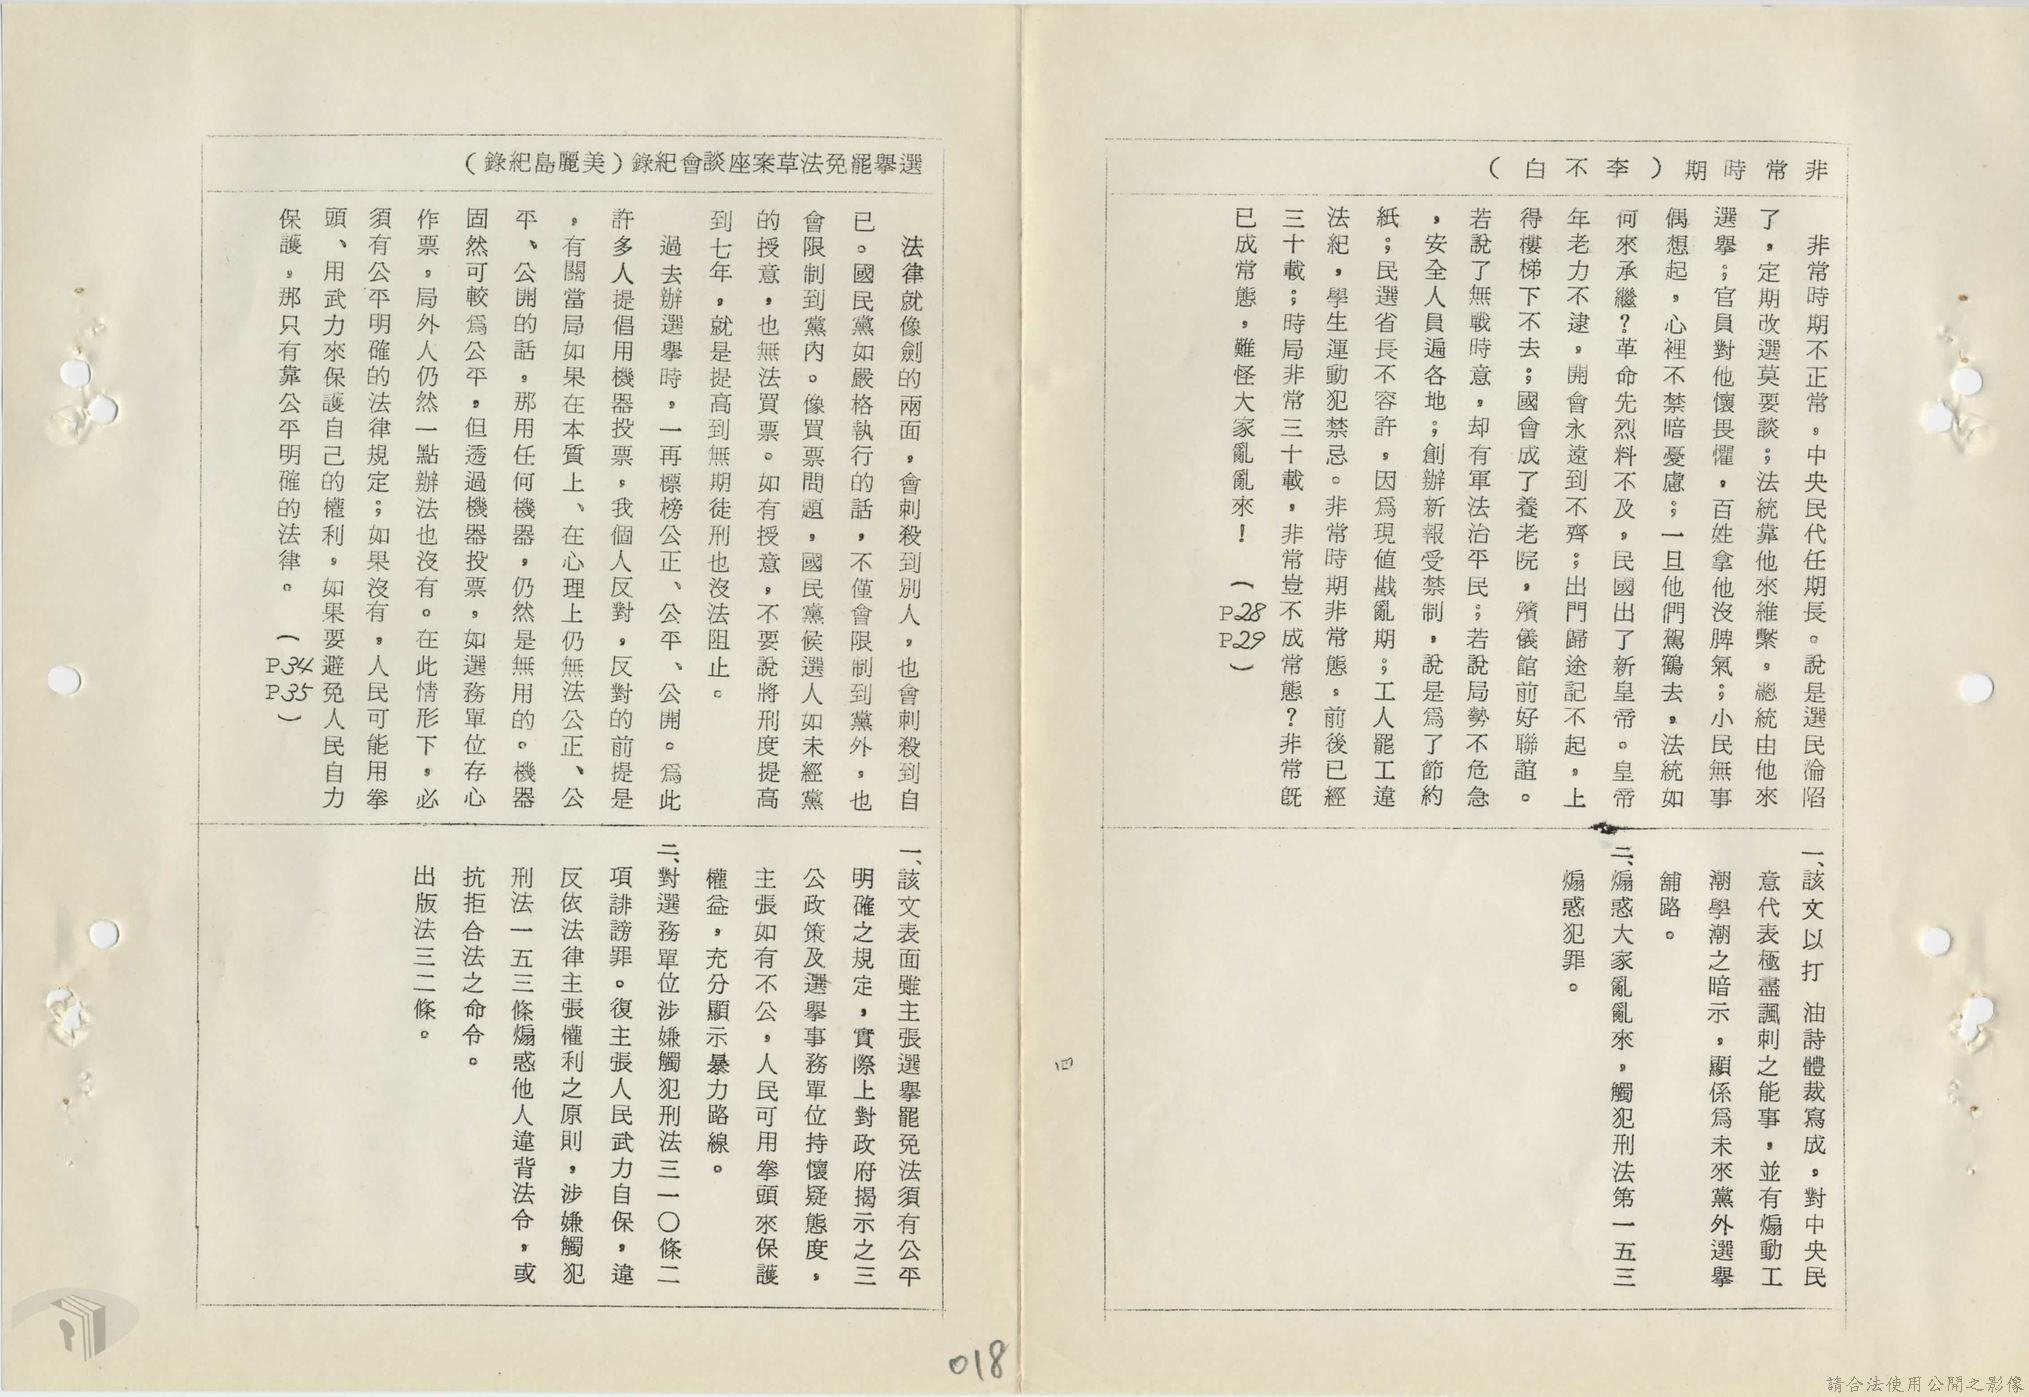 非常時期（李不白）
非常時期不正常，中央民代任期長。說是選民淪陷
了，定期改選莫要談；法統靠他來維繫，總統由他來
選舉；官員對他懷畏懼，百姓拿他沒脾氣；小民無事
偶想起，心裡不禁暗憂慮；一旦他們駕鶴去，法統如
何來承繼？革命先烈料不及，民國出了新皇帝。皇帝
年老力不逮，開會永遠到不齊；出門歸途記不起，上
得樓梯下不去；國會成了養老院，殯儀館前好聯誼。
若說了無戰時意，却有軍法治平民；若說局勢不危急
，安全人員遍各地；創辦新報受禁制，說是爲了節約
紙；民選省長不容許，因爲現値戡亂期；工人罷工違
法紀，學生運動犯禁忌。非常時期非常態，前後已經
三十載；時局非常三十載，非常豈不成常態？非常旣
已成常態，難怪大家亂亂來！（P28 P29）
一、該文以打 油詩體裁寫成，對中央民
意代表極盡諷刺之能事，並有煽動工
潮學潮之暗示，顯係爲未來黨外選舉
舖路。
二、煽惑大家亂亂來，觸犯刑法第一五三
煽惑犯罪。
四
選舉罷免法草案座談會紀錄（美麗島紀錄）
法律就像劍的兩面，會刺殺到別人，也會刺殺到自
已。國民黨如嚴格執行的話，不僅會限制到黨外，也
會限制到黨內。像買票問題，國民黨候選人如未經黨
的授意，也無法買票。如有授意，不要說將刑度提高
到七年，就是提高到無期徒刑也沒法阻止。
過去辦選舉時，一再標榜公正、公平、公開。爲此
許多人提倡用機器投票，我個人反對，反對的前提是
，有關當局如果在本質上、在心理上仍無法公正、公
平、公開的話，那用任何機器，仍然是無用的。機器
固然可較爲公平，但透過機器投票，如選務單位存心
作票，局外人仍然一點辦法也沒有。在此情形下，必
須有公平明確的法律規定；如果沒有，人民可能用拳
頭、用武力來保護自己的權利，如果要避免人民自力
保護，那只有靠公平明確的法律。（P34 P35）
一、該文表面雖主張選舉罷免法須有公平
明確之規定，實際上對政府揭示之三
公政策及選舉事務單位持懷疑態度，
主張如有不公，人民可用拳頭來保護
權益，充分顯示暴力路線。
二、對選務單位涉嫌觸犯刑法三一〇條二
項誹謗罪。復主張人民武力自保，違
反依法律主張權利之原則，涉嫌觸犯
刑法一五三條煽惑他人違背法令，或
抗拒合法之命令。
出版法三二條。
018
請合法使用公開之影像